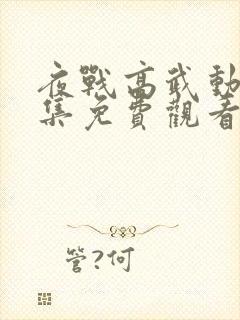 夜戰高武動
集免費觀看
管?何